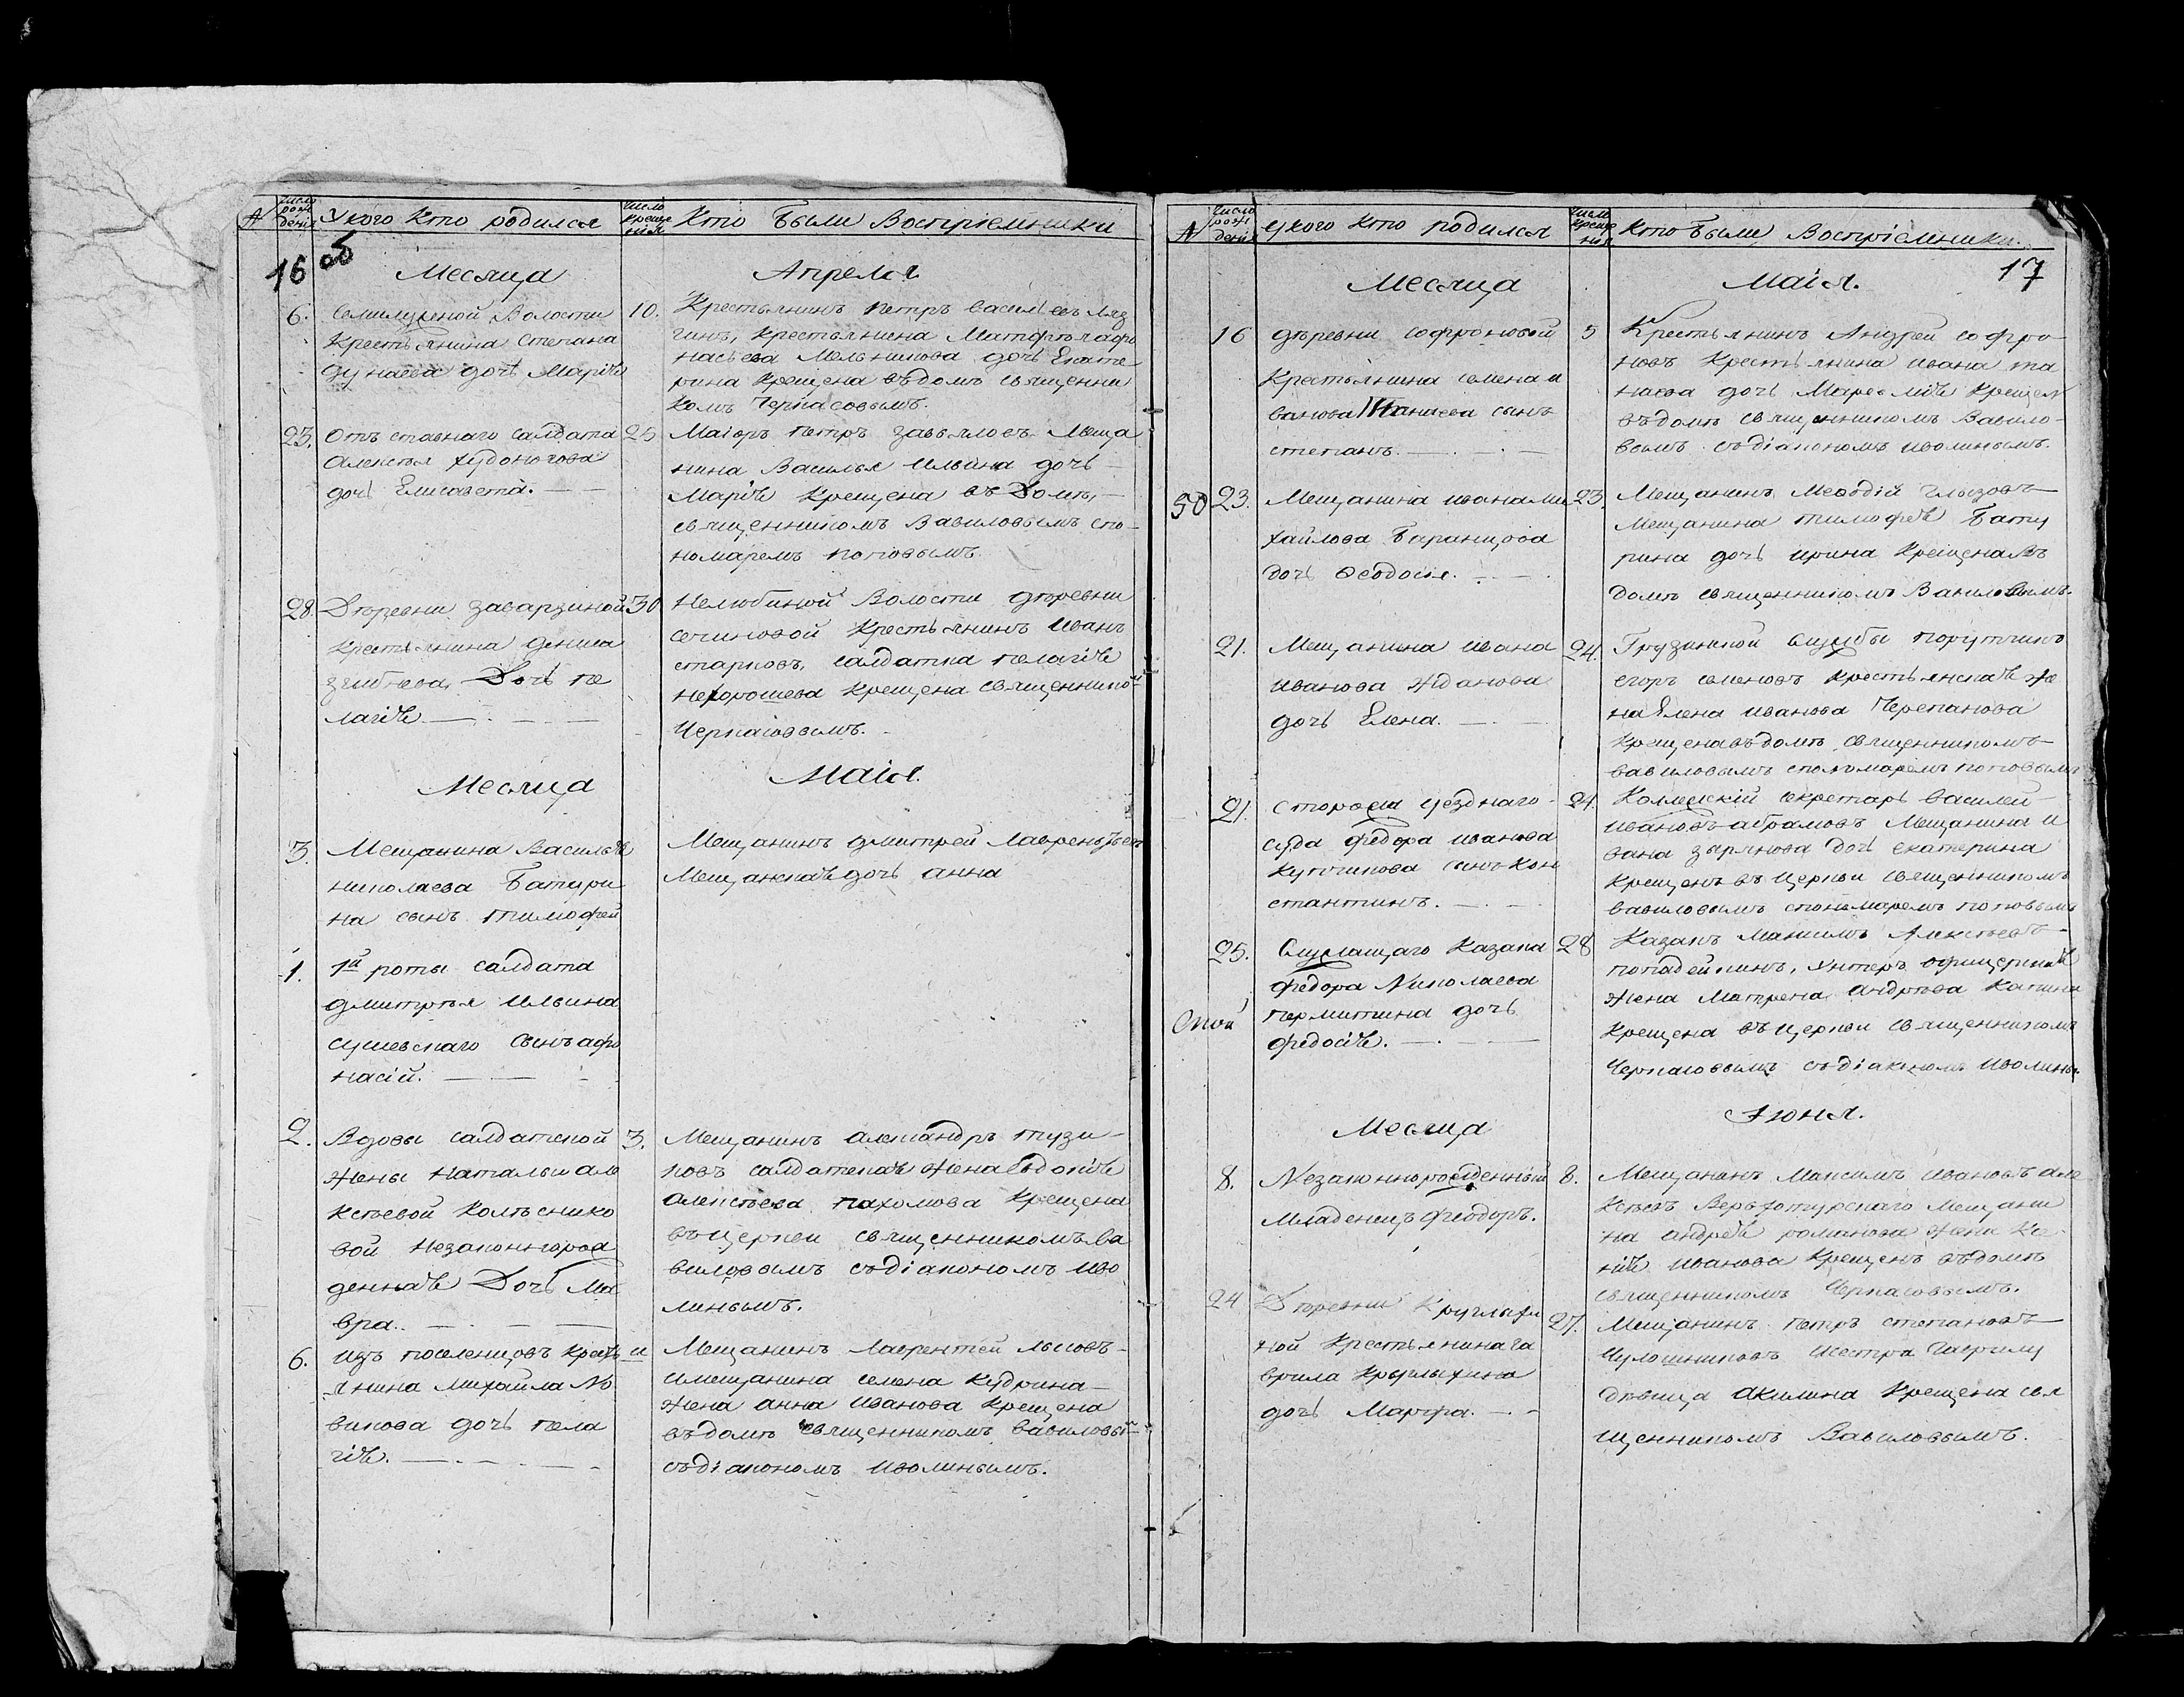 № Число рождения У кого кто родился Число крещения Кто были Восприемники
16 об
Месяца Апреля
6. Семилужной Волости
Крестьянина Степана
Дунаева дочь Марія
10. Крестьянинъ Петръ Васильевъ
гинъ, крестьянина Матфѣя Афо
насьева Мельникова дочь Екате
рина крещена въ домѣ священни
комъ Черкасовымъ.
23. Отъставнаго салдата
Алексѣя Худоногова
дочь Елисавета.
25 Маіоръ Петръ Завьяловъ Меща
нина Василья Ильина дочь
Марія крещена въ Домѣ,
священникомъ Вавиловымъ спо
номаремъ Поповымъ
28. Деревни Заварзиной
крестьянина Дениса
Дочь Пе
лагія
30 Нелюбиной Волости деревни
крестьянинъ Иванъ
старковъ, салдатка Пелагія
нехорошева крещена священнико
Черкасовымъ.
Месяца Маія
3. Мещанина Василія
Николаева Батури
на сынъ Тимофей
Мещанинъ Дмитрей Лаврентьевъ
Мещанская дочь анна
1. 1й роты салдата
Дмитрѣя Ильина
сушевскаго сынъ афо
насій.
2. Вдовы салдатской
жены Натальи але
ксѣевой Колѣснико
вой незаконнорож
денная Дочь Ма
вра.
3. Мещанинъ александръ тузи
ковъ салдатская жена Евдокія
алексѣева пахомова крещена
въ церкви священникомъ Ва
виловымъ съ діакономъ Иво
линымъ.
6. Изъ поселенцовъ крестья
янина Михайла Но
викова дочь Пела
гія.
11 Мещанинъ Лаврентей Лысовъ
имещанина семена Кудрина
жена анна Иванова крещена
въ домѣ священникомъ Вавиловы
съ діакономъ Иволинымъ.
№ Число рождения У кого кто родился Число крещения Кто были Восприемники.
17
Месяца Маія.
16 деревни Софроновой
Крестьянина семена и
ванова Танаева сынъ
степанъ.
5 Крестьянинъ Андрей софро
новъ крестьянина ивана та
наева дочь крещен
въ домѣ священникомъ Вавило
вымъ съ діакономъ иволинымъ.
50 23. Мещанина ивана Ми
хайлова Баранщова
дочь Ѳеодосія.
23. Мещанинъ Меѳодій Глызовъ
Мещанина тимофея Бату
рина дочь ирина крещена въ
домѣ священникомъ Вавиловымъ.
21. Мещанина ивана
иванова жданова
дочь Елена.
24. Грузинской службы порутчикъ
егоръ семеновъ крестьянская же
на Елена иванова Черепанова
крещена въ домѣ священникомъ
вавиловымъ спономаремъ поповымъ
21. сторожа уезднаго
суда федора иванова
сынъ Кон
стантинъ.
24. Коллежскій секретарь василей
ивановъ абрамовъ Мещанина и
вана зырянова дочь екатерина
крещенъ въ церкви священникомъ
вавиловымъ спономаремъ поповымъ
25. Служащаго казака
федора Николаева
пермитина дочь
федосія.
28 Казакъ Максимъ Алексѣевъ
попадейкинъ, Унтеръ офицерская
жена Матрена андрѣева
крещена въ церкви священникомъ
Черкасовымъ съ діакономъ Иволины
Месяца Іюня.
8. Незаконнорожденный
Младенецъ Феодоръ.
8. Мещанинъ Максимъ ивановъ але
ксѣевъ Верьхотурскаго Мещани
на андрея романова жена Ксе
нія иванова крещенъ въ домѣ
священникомъ Черкасовымъ.
24 Деревни Круглыхи
ной крестьянина га
врила Круглыхина
дочь Марфа.
27. Мещанинъ петръ степановъ
Чулошниковъ исестра
дѣвица акилина крещена свя
щенникомъ Вавиловымъ.